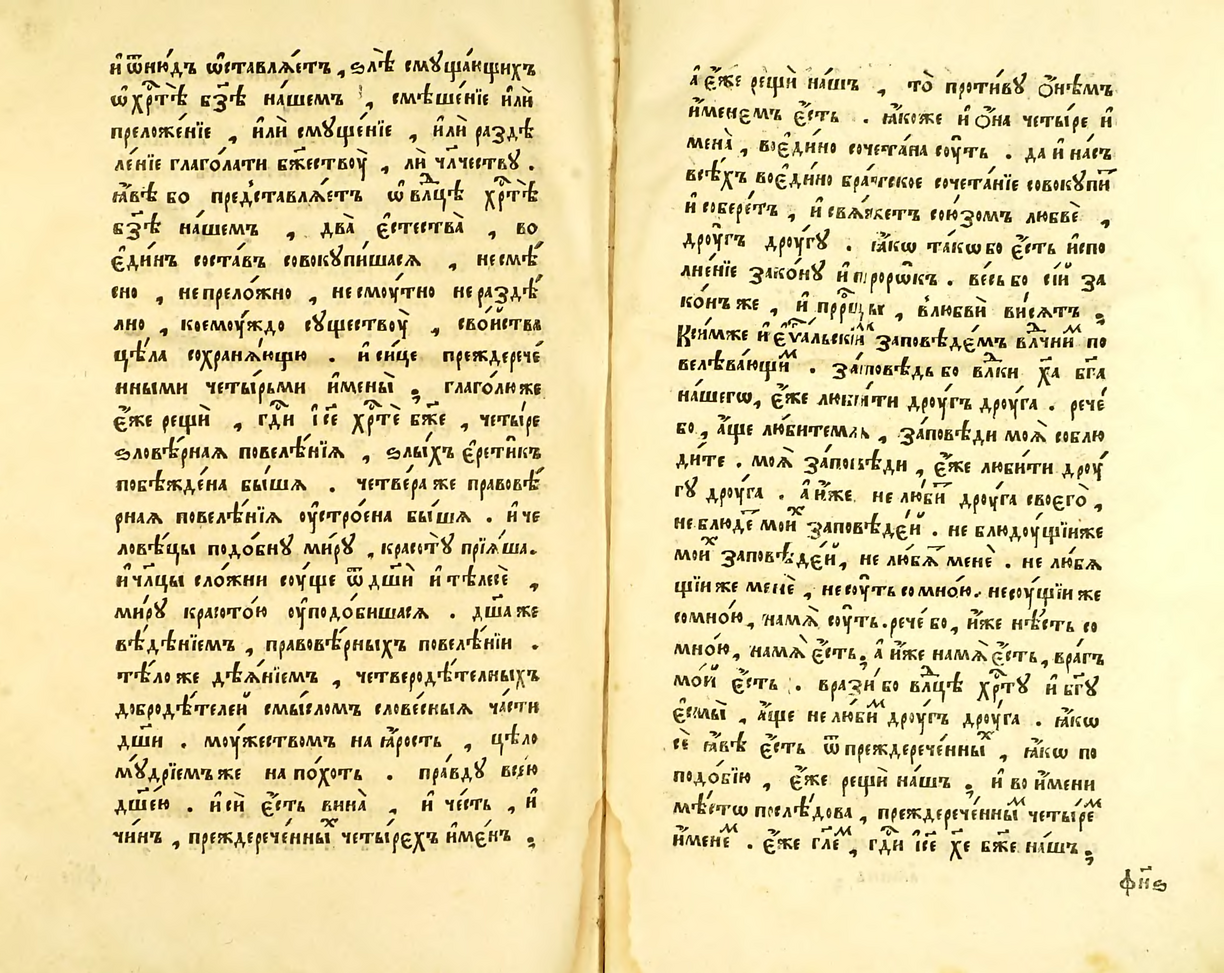 и҆ ѿню́дъ ѡ҆ставлѧ́етъ , ѕлѣ̀ смꙋща́ющихъ
ѡ҆ хрⷭ҇тѣ̀ бз҃ѣ на́шемъ , смѣше́нїе и҆лѝ
преложе́нїе , и҆лѝ смꙋще́нїе , и҆лѝ раздѣ
ле́нїе глаго́лати бж҃ествоу̀ , лѝ чл҃честву̀ .
ꙗ҆́вѣ бо представлѧ́етъ ѡ҆ влⷣцѣ хрⷭ҇тѣ̀
бз҃ѣ на́шемъ , два̀ є҆стества̀ , во
є҆ди́нъ соста́въ совокꙋпи́шасѧ , несмѣ́
сно , непрело́жно , несмоу́тно нераздѣ́
лно , коемоу́ждо сꙋществоу̀ , сво́йства
цѣ́ла сохранѧ́ющю . и҆ си́це преждерече́
нными четы́рьми и҆мены̀ ; глаго́лю же
є҆́же рещѝ , гдⷭ҇и і҆и҃се хрⷭ҇тѐ бж҃е , четы́ре
ѕловѣ́рнаѧ повелѣ́нїѧ , ѕлы́хъ є҆рети̑къ
побѣжде́на бы́шѧ . че́тверa же правовѣ́
рнаѧ повелѣ́нїѧ оу҆строе́на бы́шѧ . и҆ че
ловѣ́цы подо́бнꙋ ми́рꙋ , красотꙋ̀ прїѧ́ша .
и҆ чл҃цы сло́жни соу́ще ѿ дш҃ѝ и҆ тѣлесѐ ,
ми́рꙋ красото́ю оу҆подо́бишасѧ . дш҃а же
вѣ́дѣнїемъ , правовѣ́рныхъ повелѣ́нїи .
тѣ́ло же дѣѧ́нїемъ , четверодѣ́телныхъ
добродѣ́телей смы́сломъ слове́сныѧ ча́сти
дш҃ѝ . моу́жествомъ на ꙗ҆́рость , цѣ́ло
мꙋ́дрїемъ же на по́хоть . пра́вдꙋ все́ю
дш҃е́ю . и҆ сѝ є҆́сть вина̀ , и҆ че́сть , и҆
чи́нъ , преждерече́нныⷯ четы́рехъ и҆ме́нъ ;
а҆ є҆́же рещѝ на́шъ , то̀ проти́вꙋ ѻ҆́нѣмъ
и҆́менемъ є҆́сть . ꙗ҆́коже и҆ ѻ҆́на четы́ре и҆
мена̀ , воеди́но сочета́на соу́ть . да и҆ на́съ
всѣ́хъ воеди́но бра́тское сочета́нїе совокꙋпи́ᵀ
и҆ собере́тъ , и҆ свѧ́жетъ сою́зомъ любвѐ ,
дроу́гъ дроу́гꙋ . ꙗ҆́кѡ та́кѡ бо є҆́сть и҆спо
лне́нїе зако́нꙋ и҆ проро́ѡкъ . ве́сь бо се́й за
ко́нъ же , и҆ прⷪ҇ро́цы , в любвѝ вися́тъ ;
Ксимже и҆ є҆ѵⷢ҇а́льскїиⷨ за́повѣдемъ влⷣчниⷨ по
велѣва́ющиⷨ . за́повѣдь бо влⷣки хⷭ҇а бг҃а
на́шегѡ , є҆́же люби́ти дроу́гъ дроу́га . рече́
бо , а҆́ще лю́битемѧ , за́повѣди моѧ̀ соблю
ди́те . моѧ̀ за́повѣди , є҆́же люби́ти дроу́
гꙋ дроу́га . а҆ и҆́же не лю́биᵀ дроу́га своего̀ ,
не блюде́ᵀ мои́ⷯ за́повѣдей . не блюдоу́щїи же
мои́ⷯ за́повѣдей , не лю́бѧᵀ менѐ . не любѧ́
щїи же менѐ , не соу́ть со мно́ю . не соу́щїи же
со мно́ю , на мѧ̀ соу́ть . рече́ бо , и҆́же нѣ́сть со
мно́ю , на мѧ̀ є҆́сть ; а҆ и҆́же на мѧ̀ є҆́сть , вра́гъ
мо́й є҆́сть . врази́ бо влⷣцѣ хрⷭ҇тꙋ̀ и҆ бг҃ꙋ
є҆смы̀ , а҆́ще не лю́биⷨ дроу́гъ дроу́га . ꙗ҆́кѡ
се̏ ꙗ҆́вѣ є҆́сть ѿ преждерече́нныⷯ , ꙗ҆́кѡ по
подо́бїю , є҆́же рещѝ на́шъ ; и҆ во и҆́мени
мѣ́стѡ послѣ́дова , преждерече́нныⷨ четы́реⷨ
и҆мене́ⷨ . є҆́же гл҃еⷨ , гдⷭ҇и і҆и҃се хе҃ бж҃е на́шъ ;
фн҃ѕ